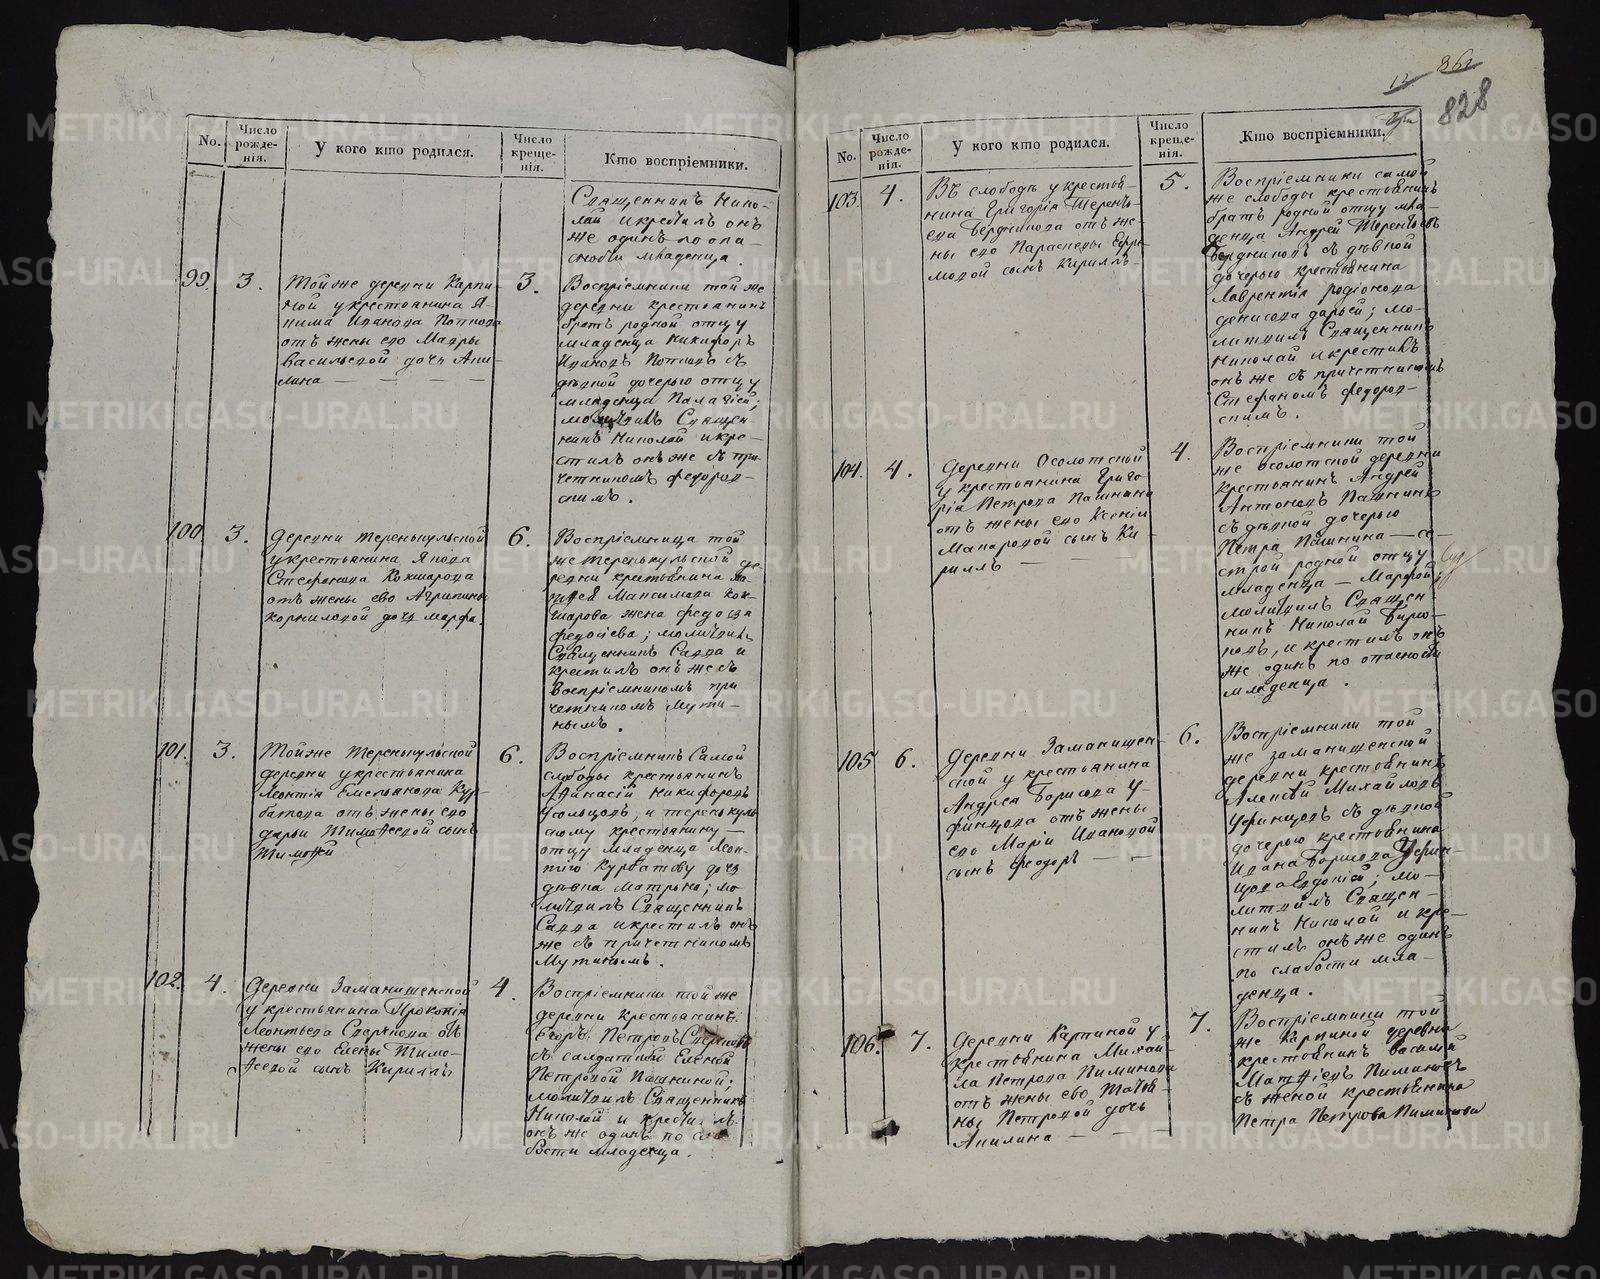 No.
Число рожде-нія.
У кого кто родился.
Число креще-нія.
Кто воспріемники.
Священникъ Нико-
лай и крестилъ онъ
же одинъ по опа-
сности младенца.
99. 3.
Той же деревни Карпи-
ной у крестьянина Я-
кима Иванова Попкова
отъ жены его Мавры
Васильевой дочь Аки-
лина
3.
Воспріемники той же
деревни крестьянинъ
братъ родной отцу
младенца Никифоръ
Ивановъ Попковъ съ
дѣвкой дочерью отцу
младенца Палагіей;
молитвилъ Священ
никъ Николай и кре-
стилъ онъ же съ при-
четникомъ Федоров-
скимъ.
100. 3.
Деревни Теренькульской
у крестьянина Якова
Стефанова Кокшарова
отъ жены ево Агрипины
Корниловой дочь Марфа.
6.
Воспріемница той
же Теренькульской де-
ревни крестьянина
Максимова Кок-
шарова жена Федосья
Федосіева; молитвилъ
Священникъ Савва и
крестилъ онъ же съ
воспріемникомъ при
четникомъ Мути-
нымъ.
101. 3.
Той же Теренькульской
деревни у крестьянина
Леонтія Емельянова Кур-
батова отъ жены его
Дарьи Тимофеевой сынъ
Тимофей
6.
Воспріемникъ Самой
слободы крестьянинъ
Афанасій Никифоровъ
Усольцовъ, и Теренькуль
скому крестьянину —
отцу младенца Леон-
тію Курбатову дочь
дѣвка Матрена; мо-
литвилъ Священникъ
Савва и крестилъ онъ
же съ причетникомъ
Мутинымъ.
102. 4.
Деревни Заманишенской
у крестьянина Прокопія
Леонтьева Сварчкова отъ
жены его Елены Тимо-
феевой сынъ Кириллъ
4.
Воспріемники той же
деревни крестьянинъ
Егоръ Петровъ
съ салдаткой Еленой
Петровой Пашкиной;
молитвилъ Священникъ
Николай и крестилъ
онъ же одинъ по сла
бости младенца.
862
828
No.
Число рожде-нія.
У кого кто родился.
Число креще-нія.
Кто воспріемники.
103. 4.
Въ слободѣ у крестья-
нина Григорія Терень-
ева Бердникова отъ же-
ны его Параскевы Ефи-
мовой сынъ Кириллъ
5.
Воспріемники самой
же слободы крестьянинъ
братъ родной отцу мла-
денца Андрей Терентьевъ
Бердниковъ съ дѣвкой
дочерью крестьянина
Лаврентія Родіонова
Денисова Дарьей; мо-
литвилъ Священникъ
Николай и крестилъ
онъ же съ причетникомъ
Стефаномъ Федоров-
скимъ.
104. 4.
Деревни Осолотской
у крестьянина Григо-
рія Петрова Пашнина
отъ жены его Ксеніи
Макаровой сынъ Ки-
риллъ —
4.
Воспріемники той
же Осолотской деревни
крестьянинъ Андрей
Антоновъ Пашнинъ
съ дѣвкой дочерью
Петра Пашнина — се-
строй родной отцу
младенца — Марфой;
молитвилъ Священ
никъ Николай Бирю-
ковъ, и крестилъ онъ
же одинъ по опасности
младенца.
105 6.
Деревни Заманишен-
ской у крестьянина
Андрея Борисова У-
финцова отъ жены
его Маріи Ивановой
сынъ Феодоръ — —
6.
Воспріемники той
же Заманишенской
деревни крестьянинъ
Алексѣй Михайловъ
Уфинцовъ съ дѣвкой
дочерью крестьянина
Ивана Борисова Уфин-
цова Евдокіей; мо-
литвилъ Священ-
никъ Николай и кре-
стилъ онъ же одинъ
по слабости мла-
денца.
106. 7.
Деревни Карпиной у
крестьянина Михай-
ла Петрова Пиминова
отъ жены ево Татья-
ны Петровой дочь
Акилина — —
7.
Воспріемники той
же Карпиной деревни
крестьянинъ Василій
Матфіевъ Пиминовъ
съ женой крестьянина
Петра Петрова Пиминова
METRIKI.GASO-URAL.RU